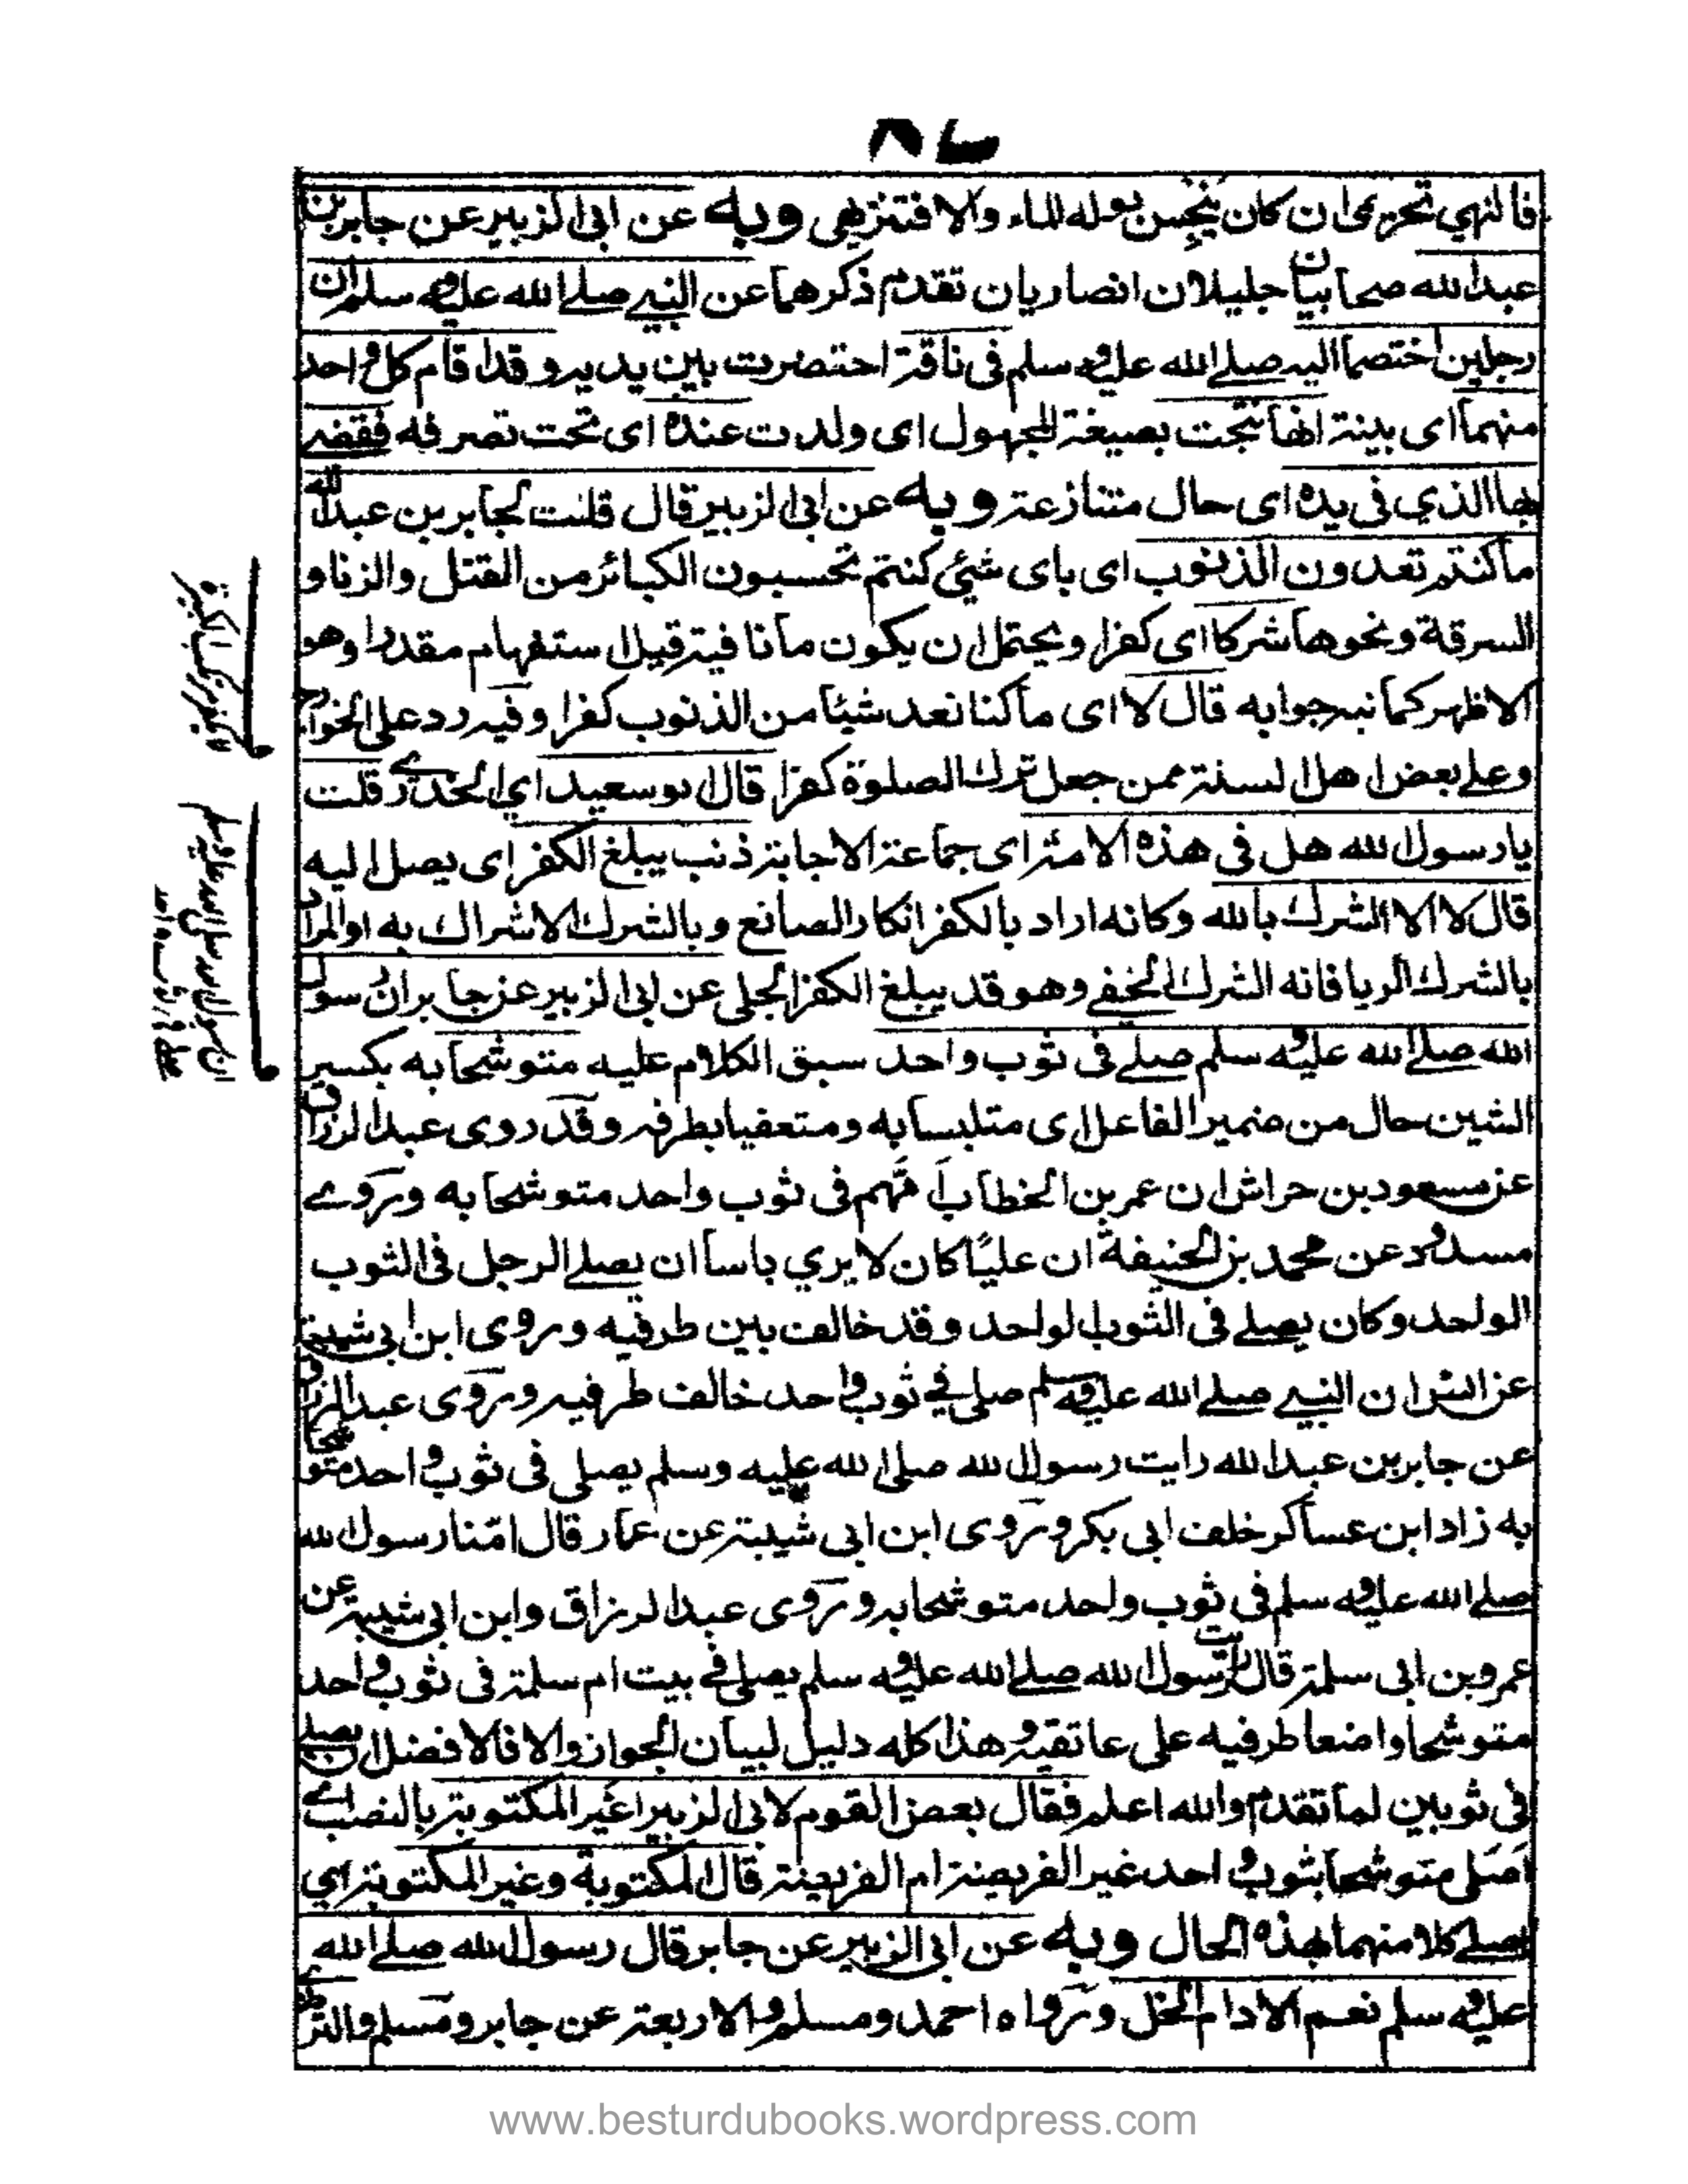 ٨٦
فالنهي تحريمي ان كان ينجس بوله الماء والا فتنزيهي وبه عن ابي الزبير عن جابر بن
عبد الله صحابيان جليلان انصاريان تقدم ذكرهما عن النبي صلى الله عليه وسلم ان
رجلين اختصما اليه صلى الله عليه وسلم في ناقة احتضرت بين يديه وقد اقام كل واحد
منهما اى بينة انها نتجت بصيغة المجهول اى ولدت عنده اى تحت تصرفه فقضى
بها الذي في يده اى حال متنازعة وبه عن ابي الزبير قال قلت لجابر بن عبد الله
ما كنتم تعدون الذنوب اى باى شئ كنتم تحسبون الكبائر من القتل والزنا و
السرقة ونحوها شركا اى كفرا ويحتمل ان يكون ما نافية قبل استفهام مقدرا وهو
الاظهر كما نبه جوابه قال لا اى ما كنا نعد شيئا من الذنوب كفرا وفيه رد على الخوارج
وعلى بعض اهل السنة ممن جعل ترك الصلوة كفرا قال ابو سعيد اي الخدرى قلت
يا رسول الله هل في هذه الامة اى جماعة الاجابة ذنب يبلغ الكفر اى يصل اليه
قال لا الا الشرك بالله وكانه اراد بالكفر انكار الصانع وبالشرك الاشراك به او المراد
بالشرك الريا فانه الشرك الخفي وهو قد يبلغ الكفر الجلي عن ابي الزبير عن جابر ان رسول
الله صلى الله عليه وسلم صلى في ثوب واحد سبق الكلام عليه متوشحا به بكسر
الشين حال من ضمير الفاعل اى متلبسا به ومتعفيا بطرفه وقد روى عبد الرزاق
عن مسعود بن حراش ان عمر بن الخطاب امّهم في ثوب واحد متوشحا به وروى
مسدد عن محمد بن الحنيفة ان عليًا كان لا يري باسا ان يصلى الرجل في الثوب
الواحد وكان يصلى في الثوب الواحد وقد خالف بين طرفيه وروى ابن ابي شيبة
عن انس ان النبي صلى الله عليه وسلم صلى في ثوب واحد خالف طرفيه وروى عبد الرزاق
عن جابر بن عبد الله رايت رسول الله صلى الله عليه وسلم يصلي في ثوب واحد متوشحا
به زاد ابن عساكر خلف ابي بكر وروى ابن ابي شيبة عن عمار قال امّنا رسول الله
صلى الله عليه وسلم في ثوب واحد متوشحا به وروى عبد الرزاق وابن ابي شيبة عن
عمرو بن ابي سلمة قال رايت رسول الله صلى الله عليه وسلم يصلي في بيت ام سلمة في ثوب واحد
متوشحا واضعا طرفيه على عاتقيه وهذا كله دليل لبيان الجواز والا فالافضل ان يصلى
في ثوبين لما تقدم والله اعلم فقال بعض القوم لابي الزبير اغير المكتوبة بالنصب اى
اصلى متوشحا بثوب واحد غير الفريضة ام الفريضة قال المكتوبة وغير المكتوبة اي
يصلى كلا منهما بهذه الحال وبه عن ابي الزبير عن جابر قال رسول الله صلى الله
عليه وسلم نعم الادام الخل ورواه احمد ومسلم والاربعة عن جابر ومسلم والترمذى
ان رسول الله صلى الله عليه وسلم
صلى في ثوب واحد
www.besturdubooks.wordpress.com